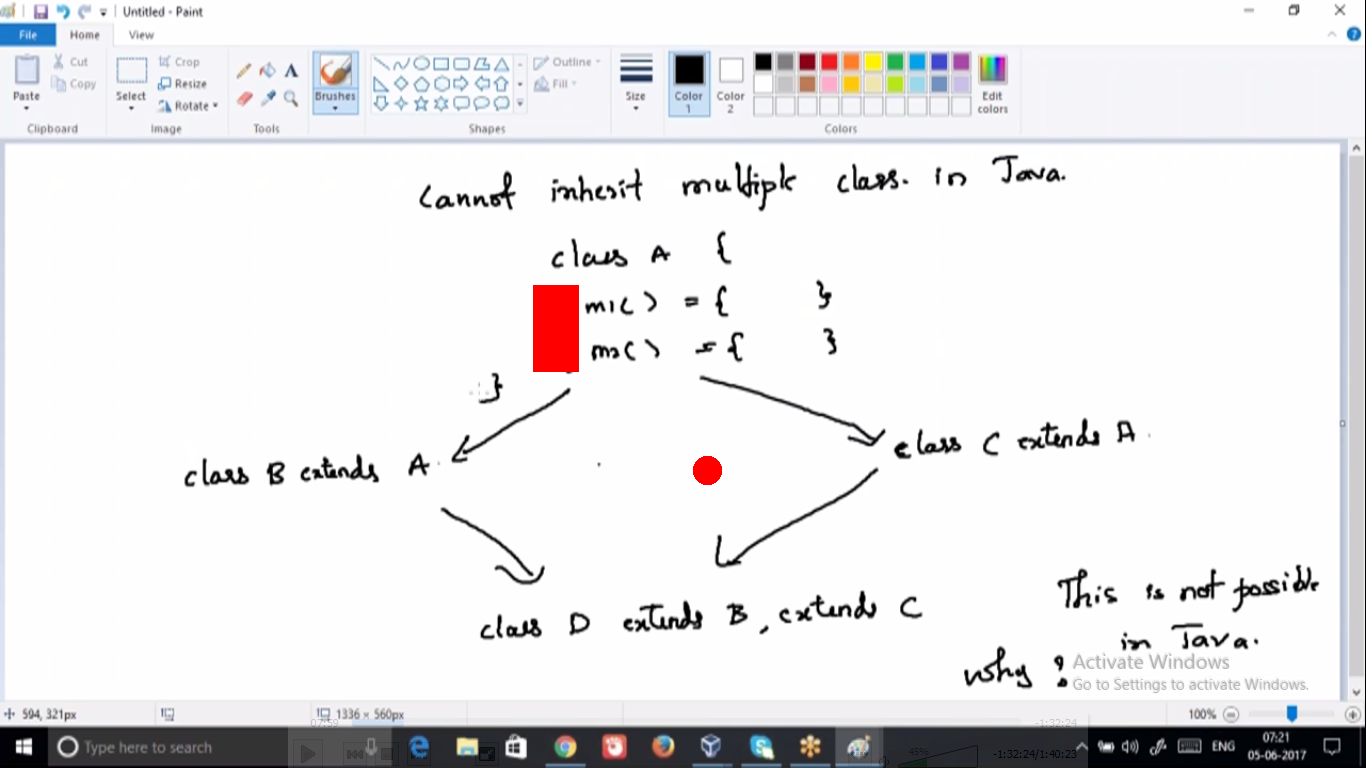 Untitled - Paint
File Home View
Paste Cut Copy Select Crop Resize Rotate Brushes Outline Fill Size Color 1 Color 2 Edit colors
Clipboard Image Tools Shapes Colors
Cannot inherit multiple class. in Java.
class A {
m1( ) = { }
m2( ) = { }
}
class B extends A.
class C extends A.
class D extends B, extends C
This is not possible
in Java.
why ?
Activate Windows
Go to Settings to activate Windows.
594, 321px 1336 × 560px 100%
07:59 -1:32:24
Type here to search
45% -1:32:24/1:40:23
ENG 07:21
05-06-2017